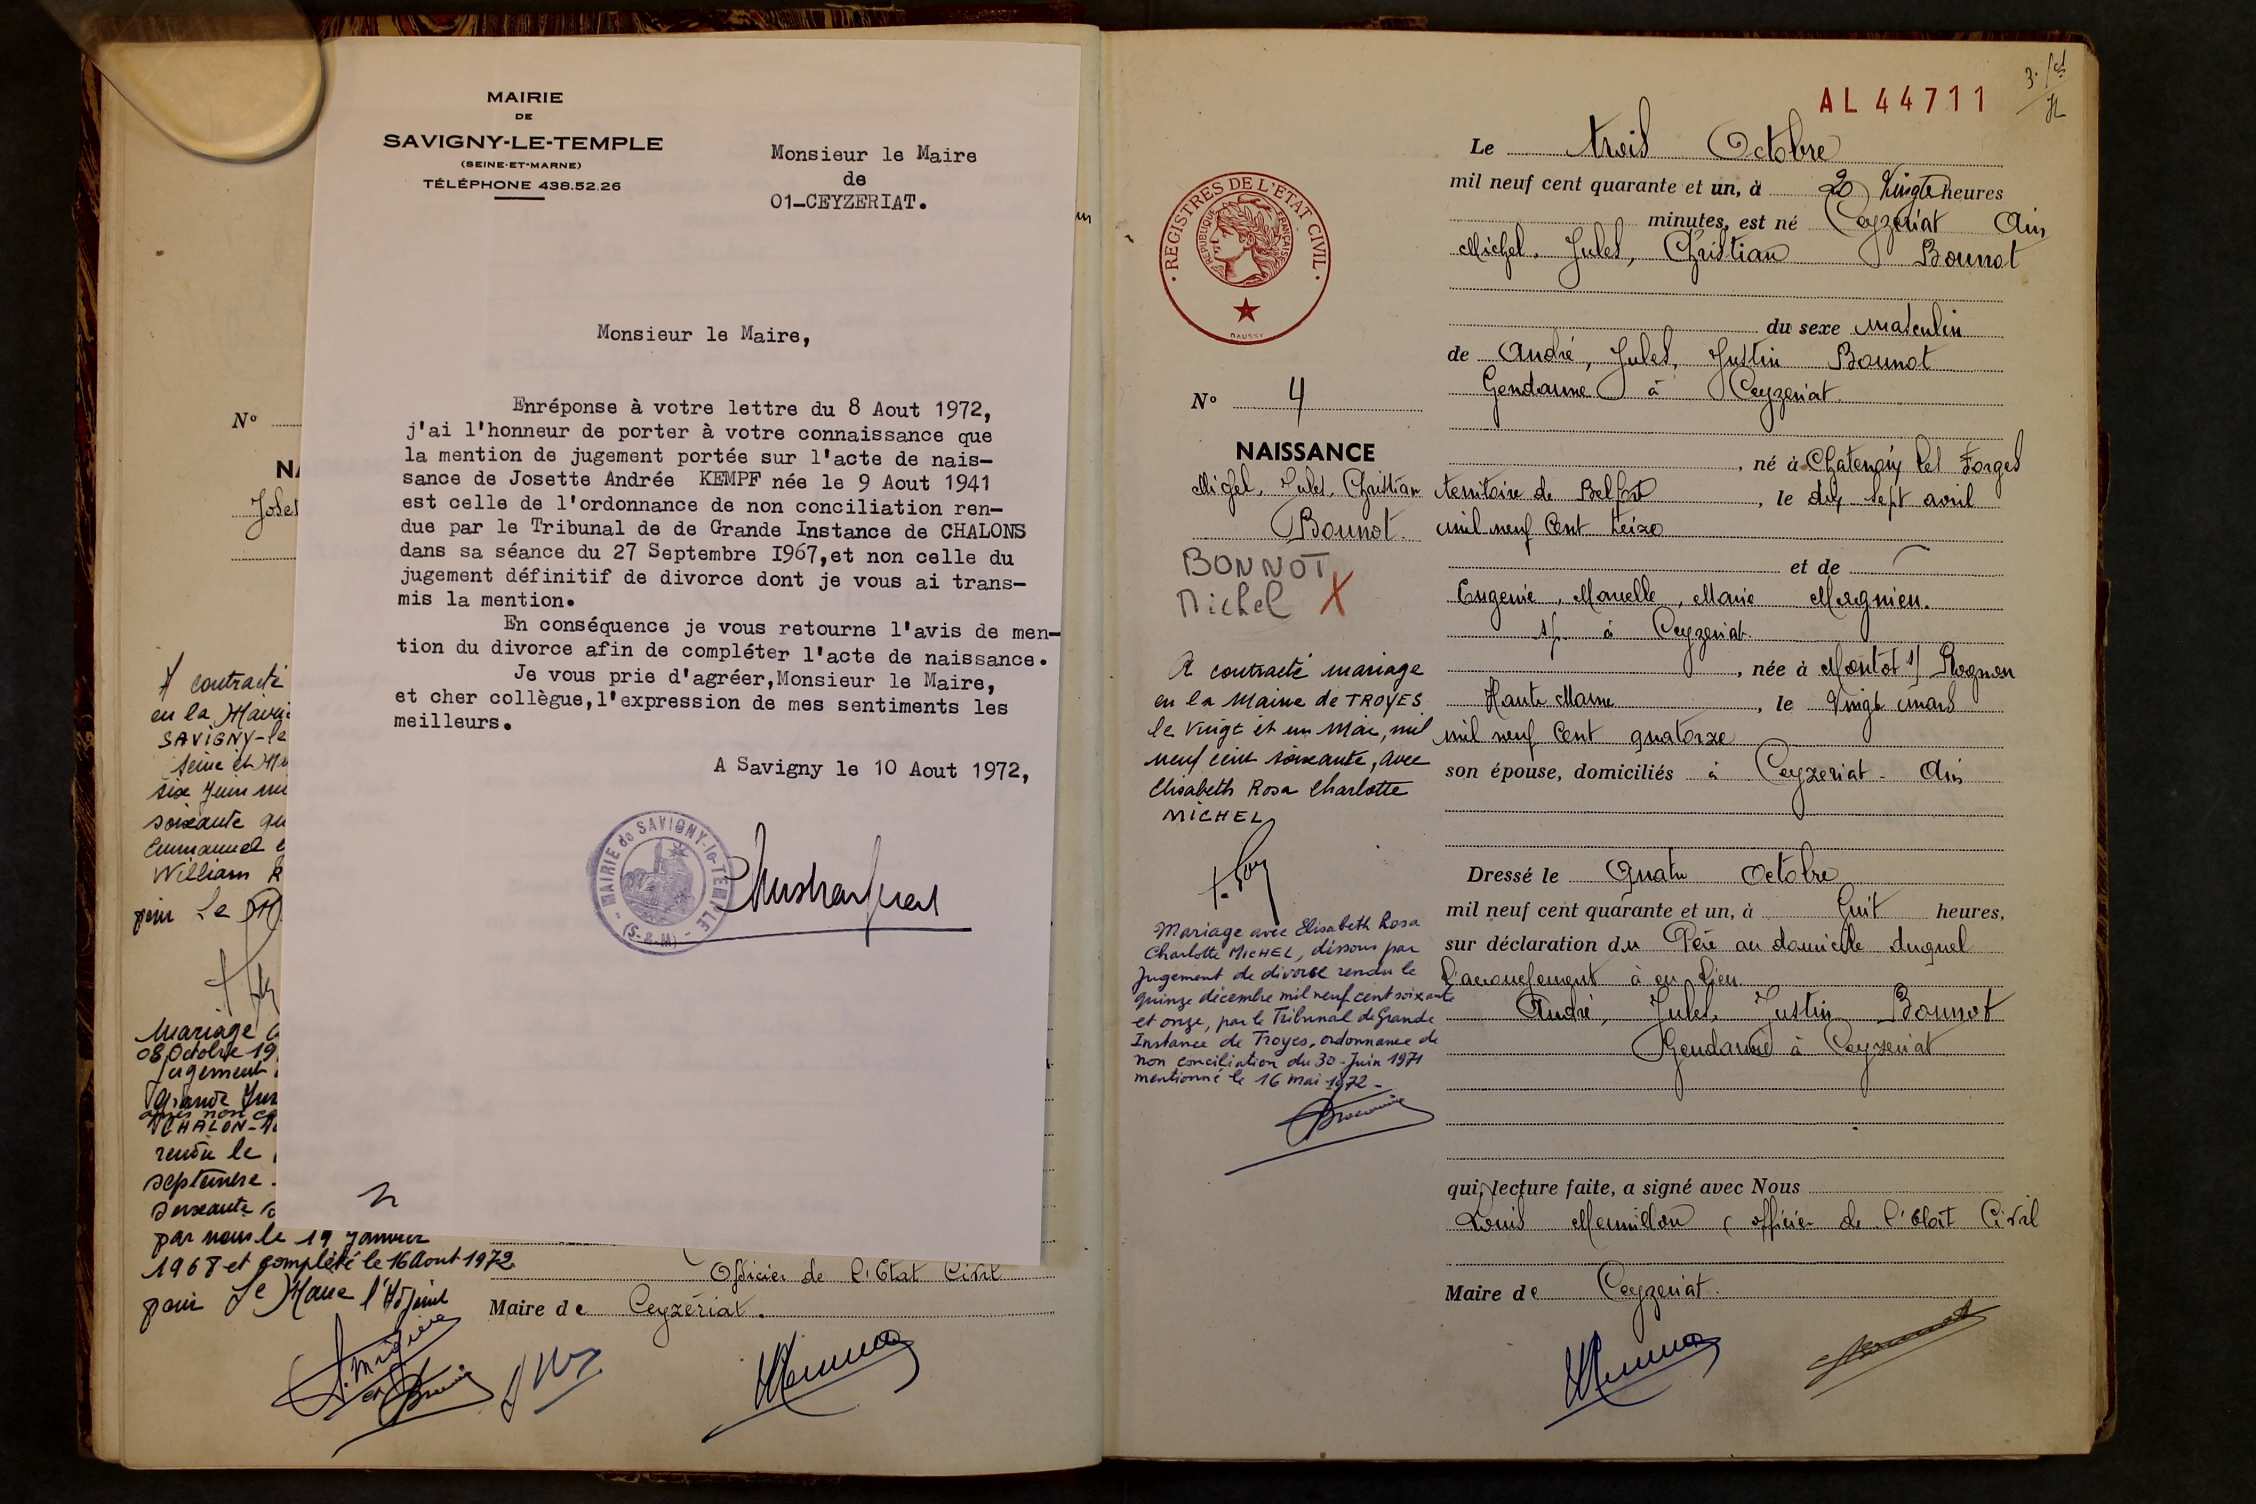 MAIRIE
DE
SAVIGNY-LE-TEMPLE
(SEINE-ET-MARNE)
TÉLÉPHONE 438.52.26
Monsieur le Maire
de
01-CEYZERIAT.
Monsieur le Maire,
Enréponse à votre lettre du 8 Aout 1972,
j'ai l'honneur de porter à votre connaissance que
la mention de jugement portée sur l'acte de nais-
sance de Josette Andrée KEMPF née le 9 Aout 1941
est celle de l'ordonnance de non conciliation ren-
due par le Tribunal de de Grande Instance de CHALONS
dans sa séance du 27 Septembre I967,et non celle du
jugement définitif de divorce dont je vous ai trans-
mis la mention.
En conséquence je vous retourne l'avis de men-
tion du divorce afin de compléter l'acte de naissance.
Je vous prie d'agréer,Monsieur le Maire,
et cher collègue,l'expression de mes sentiments les
meilleurs.
A Savigny le 10 Aout 1972,
MAIRIE de SAVIGNY-le-TEMPLE
(S-&-M)
N°
NA
Joset
A contracté
en la Mairi
SAVIGNY-le
Seine et Ma
six Juin mi
soixante qu
Emmanuel
William
pour Le
Mariage
08 Octobre 19
Jugement
Grande Ins
après non co
CHALON-
rendu le
septembre
soixante s
par nous le 19 Janvier
1968 et complété le 16 Aout 1972
pour Le Maire l'Adjoint
Officier de l'Etat Civil
Maire de Ceyzériat.
AL 44711
REGISTRES DE L'ETAT CIVIL
REPUBLIQUE FRANÇAISE
DAUSSY
N° 4
NAISSANCE
Michel, Jules, Christian
Bonnot.
BONNOT
Michel X
A contracté mariage
en la Mairie de TROYES
le vingt et un Mai, mil
neuf cent soixante, avec
Elisabeth Rosa Charlotte
MICHEL
Mariage avec Elisabeth Rosa
Charlotte MICHEL, dissous par
Jugement de divorce rendu le
quinze décembre mil neuf cent soixante
et onze, par le Tribunal de Grande
Instance de Troyes, ordonnance de
non conciliation du 30 Juin 1971
mentionné le 16 mai 1972 -
Le trois Octobre
mil neuf cent quarante et un, à 20 Vingt heures
minutes, est né Ceyzériat Ain
Michel, Jules, Christian Bonnot
du sexe masculin
de André, Jules, Justin Bonnot
Gendarme à Ceyzeriat.
, né à Chatenois les Forges
territoire de Belfort, le dix sept avril
mil neuf cent treize
et de
Eugenie, Marcelle, Marie Magnien.
s/p. à Ceyzeriat.
, née à Montot s/ Rognon
Haute Marne, le Vingt mars
mil neuf cent quatorze
son épouse, domiciliés à Ceyzeriat - Ain
Dressé le Quatre Octobre
mil neuf cent quarante et un, à huit heures,
sur déclaration du Père au domicile duquel
l'accouchement à eu lieu.
André, Jules, Justin Bonnot
Gendarme à Ceyzeriat
qui, lecture faite, a signé avec Nous
Louis Mermillon, officier de l'Etat Civil
Maire de Ceyzeriat.